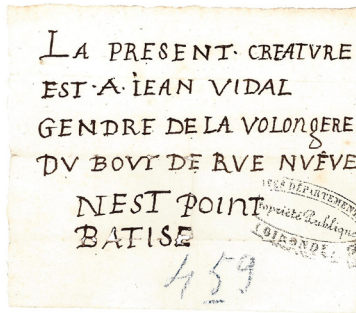 LA PRESENT· CREATVRE
EST·A·IEAN VIDAL
GENDRE DE LA VOLONGERE
DV BOVT DE RVE NVÊVE
NEST POINT
BATISE
DÉPARTEMEN
Propriété Publique
GIRONDE
459